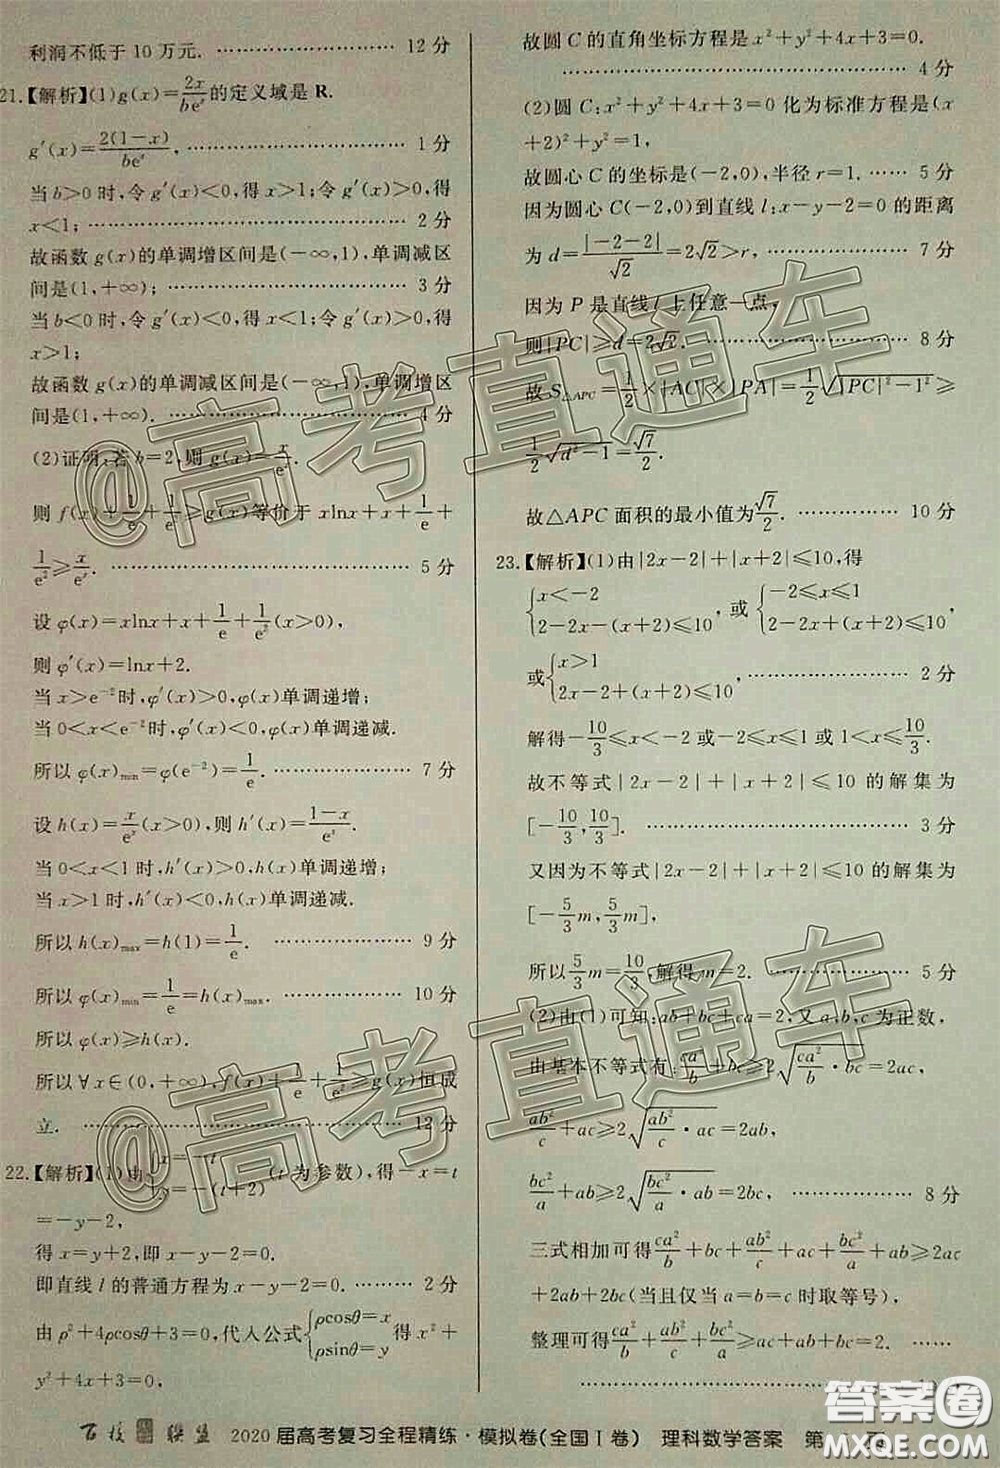 利润不低于 10 万元. ………………… 12 分
21.【解析】(1)g(x)=2x/be^x的定义域是 R.
g′(x)=2(1−x)/be^x, ………………… 1 分
当 b>0 时,令 g′(x)<0,得 x>1;令 g′(x)>0,得
x<1; ………………… 2 分
故函数 g(x)的单调增区间是(−∞,1),单调减区
间是(1,+∞); ………………… 3 分
当 b<0 时,令 g′(x)>0,得 x>1;令 g′(x)<0,得
x>1;
故函数 g(x)的单调减区间是(−∞,1),单调增区
间是(1,+∞). ………………… 4 分
(2)证明:若 b=2,则 g(x)=x/e^x.
则 f(x)+1/e+1/e²≥g(x)等价于 xlnx+x+1/e+
1/e²≥x/e^x. ………………… 5 分
设 φ(x)=xlnx+x+1/e+1/e²(x>0),
则 φ′(x)=lnx+2.
当 x>e⁻²时,φ′(x)>0,φ(x)单调递增;
当 0<x<e⁻²时,φ′(x)<0,φ(x)单调递减.
所以 φ(x)min=φ(e⁻²)=1/e. ………………… 7 分
设 h(x)=x/e^x(x>0),则 h′(x)=(1−x)/e^x.
当 0<x<1 时,h′(x)>0,h(x)单调递增;
当 x>1 时,h′(x)<0,h(x)单调递减.
所以 h(x)max=h(1)=1/e. ………………… 9 分
所以 φ(x)min=1/e=h(x)max. ………………… 10 分
所以 φ(x)≥h(x).
所以 ∀x∈(0,+∞),f(x)+1/e+1/e²≥g(x)恒成
立. ………………… 12 分
22.【解析】(1)由{x=−t y=−(t+2)(t 为参数),得−x=t
=−y−2,
得 x=y+2,即 x−y−2=0.
即直线 l 的普通方程为 x−y−2=0. ……… 2 分
由 ρ²+4ρcosθ+3=0,代入公式{ρcosθ=x ρsinθ=y得 x²+
y²+4x+3=0,
故圆 C 的直角坐标方程是 x²+y²+4x+3=0.
………………… 4 分
(2)圆 C:x²+y²+4x+3=0 化为标准方程是(x
+2)²+y²=1,
故圆心 C 的坐标是(−2,0),半径 r=1. …… 5 分
因为圆心 C(−2,0)到直线 l:x−y−2=0 的距离
为 d=|−2−2|/√2=2√2>r, ………………… 7 分
因为 P 是直线 l 上任意一点,
则|PC|≥d=2√2. ………………… 8 分
故 S△APC=1/2×|AC|×|PA|=1/2√(|PC|²−1²)≥
1/2√(d²−1)=√7/2.
故△APC 面积的最小值为√7/2. ……………… 10 分
23.【解析】(1)由|2x−2|+|x+2|≤10,得
{x<−2 2−2x−(x+2)≤10, 或 {−2≤x≤1 2−2x+(x+2)≤10,
或{x>1 2x−2+(x+2)≤10, ………………… 2 分
解得−10/3≤x<−2 或−2≤x≤1 或 1<x≤10/3.
故不等式|2x−2|+|x+2|≤10 的解集为
[−10/3,10/3]. ………………… 3 分
又因为不等式|2x−2|+|x+2|≤10 的解集为
[−5/3m,5/3m],
所以5/3m=10/3,解得 m=2. ………………… 5 分
(2)由(1)可知:ab+bc+ca=2,又 a,b,c 为正数,
由基本不等式有:ca²/b+bc≥2√(ca²/b·bc)=2ac,
ab²/c+ac≥2√(ab²/c·ac)=2ab,
bc²/a+ab≥2√(bc²/a·ab)=2bc, ……………… 8 分
三式相加可得ca²/b+bc+ab²/c+ac+bc²/a+ab≥2ac
+2ab+2bc(当且仅当 a=b=c 时取等号),
整理可得ca²/b+ab²/c+bc²/a≥ac+ab+bc=2.
百校联盟 2020 届高考复习全程精练·模拟卷(全国Ⅰ卷) 理科数学答案 第
@高考直通车
@高考直通车
答案圈
MXQE.COM